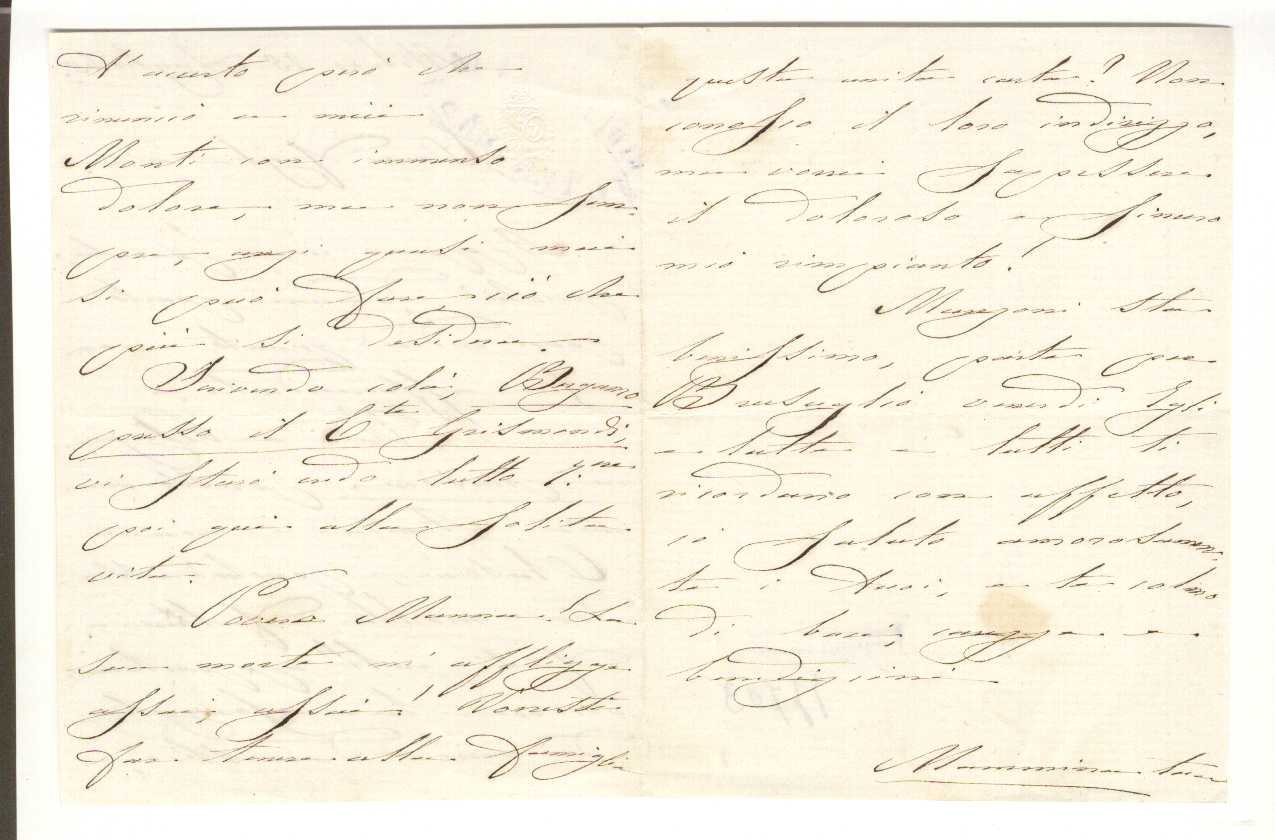 T'accerto però che
rinuncio a miei
Monti con immenso
dolore, ma non sem-
pre, anzi quasi mai
si può fare ciò che
più si desidera.
Scrivendo colà, Bergamo
presso il Cte Grismondi,
vi starò credo tutto
poi qui alla solita
vita.
Povera Mamma! La
sua morte m'affligge
assai, assai! Vorresti
far tenere alla famiglia
questa unita carta? Non
conosco il loro indirizzo,
ma vorrei sapessero
il doloroso e sincero
mio rimpianto!
Manzoni sta
benissimo, parte per
Brusuglio venerdì. Egli
e tutte e tutti ti
ricordano con affetto,
io saluto amorosamen-
te i tuoi, e te colmo
di baci, carezze e
benedizioni
Mammina tua